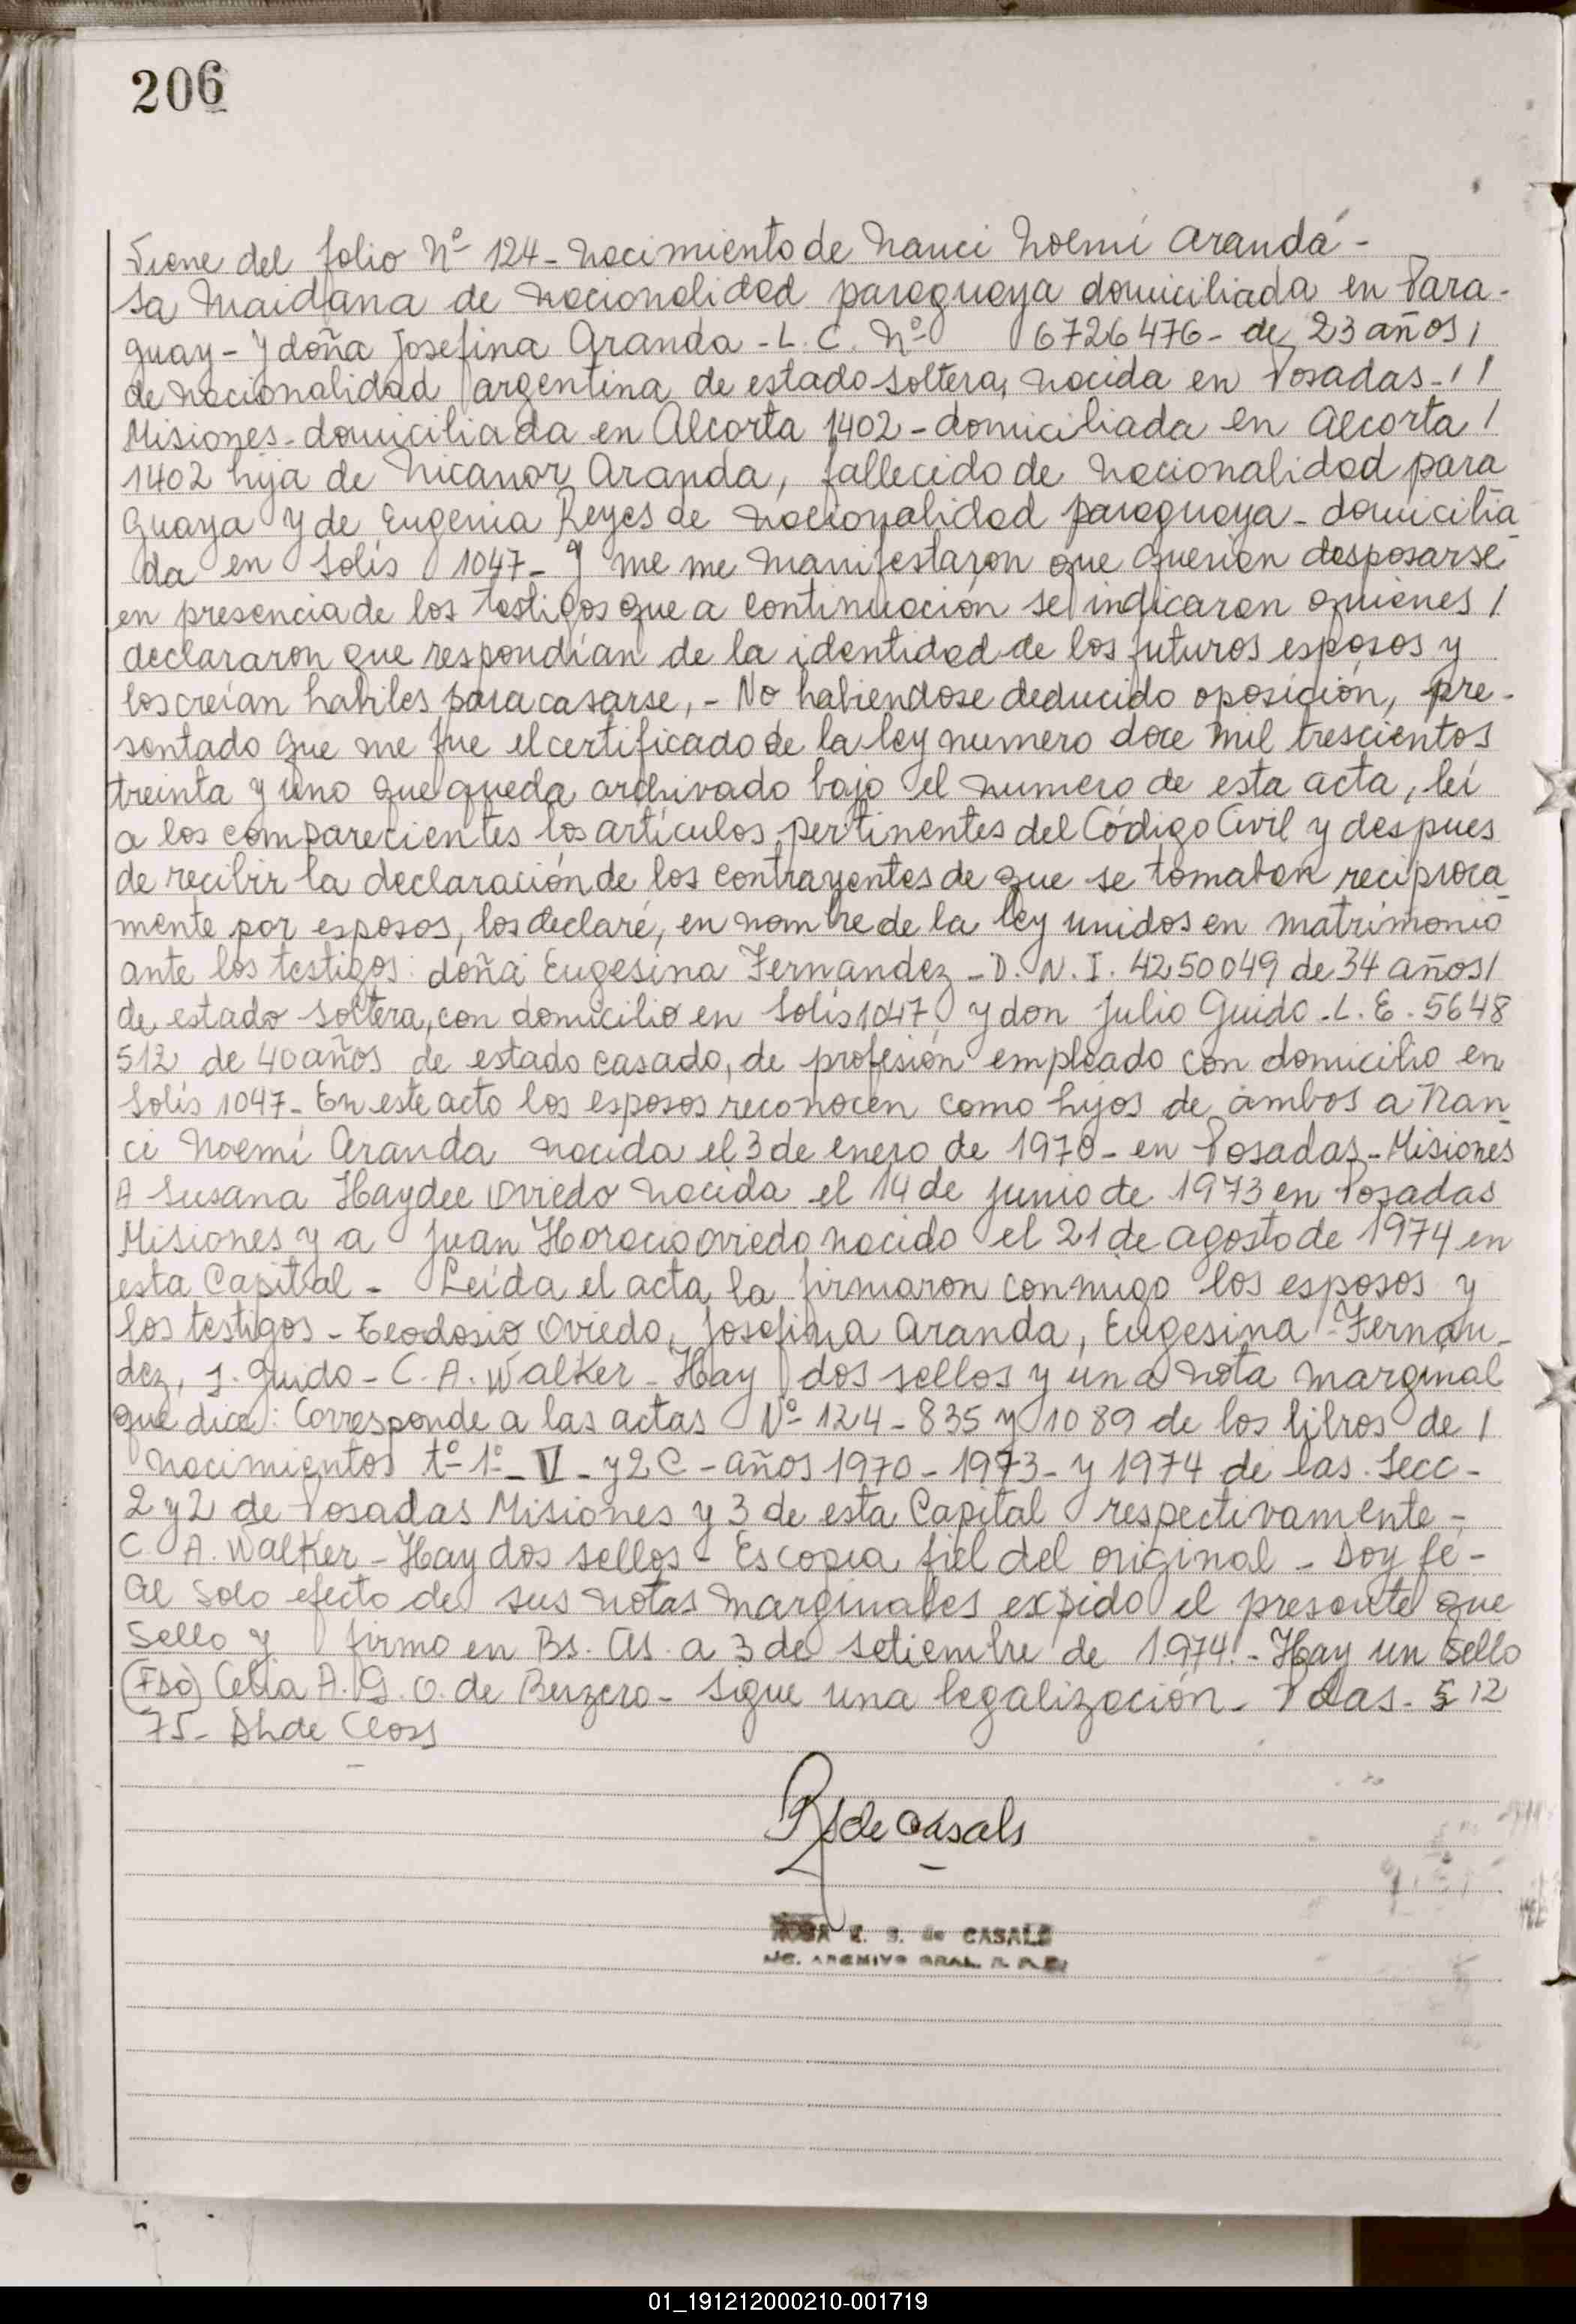 206
Viene del folio Nº 124 - Nacimiento de Nanci Noemí Aranda -
sa Maidana de nacionalidad paraguaya domiciliada en Para-
guay - y doña Josefina Aranda - L. C. Nº 6726476 - de 23 años /
de nacionalidad argentina de estado soltera, nacida en Posadas - / /
Misiones - domiciliada en Alcorta 1402 - domiciliada en Alcorta /
1402 hija de Nicanor Aranda, fallecido de nacionalidad para
guaya y de Eugenia Reyes de nacionalidad paraguaya - domicilia-
da en Solís 1047 - y me me manifestaron que querian desposarse
en presencia de los testigos que a continuación se indicaran quienes /
declararon que respondían de la identidad de los futuros esposos y
los creían habiles para casarse, - No habiendose deducido oposición, pre-
sentado que me fue el certificado de la ley numero doce mil trescientos
treinta y uno que queda archivado bajo el numero de esta acta, leí
a los comparecientes los artículos pertinentes del Código Civil y despues
de recibir la declaración de los contrayentes de que se tomaban reciproca-
mente por esposos, los declaré, en nombre de la ley unidos en matrimonio
ante los testigos: doña Eugesina Fernandez - D. N. I. 4250049 de 34 años /
de estado soltera, con domicilio en Solís 1047 y don Julio Guido - L. E. 5648
512 de 40 años de estado casado, de profesión empleado con domicilio en
Solís 1047 - En este acto los esposos reconocen como hijos de ambos a Nan-
ci Noemí Aranda nacida el 3 de enero de 1970 - en Posadas - Misiones
A Susana Haydee Oviedo nacida el 14 de junio de 1973 en Posadas
Misiones y a Juan Horacio Oviedo nacido el 21 de agosto de 1974 en
esta Capital - Leída el acta la firmaron conmigo los esposos y
los testigos - Teodosio Oviedo, Josefina Aranda, Eugesina Fernan-
dez, J. Guido - C. A. Walker - Hay dos sellos y una nota marginal
que dice: Corresponde a las actas Nº 124 - 835 y 1089 de los libros de /
nacimientos tº 1º - V - y 2 C - años 1970 - 1973 - y 1974 de las Secc -
2 y 2 de Posadas Misiones y 3 de esta Capital respectivamente -
C. A. Walker - Hay dos sellos - Es copia fiel del original - Doy fé -
Al solo efecto de sus notas marginales expido el presente que
Sello y firmo en Bs. As. a 3 de setiembre de 1974 - Hay un sello
(Fdo) Celia A. G. O. de Berzero - Sigue una legalización - Pdas - 5 12
75 - de Closs
de Casals
ROSA E. S. de CASALS
ARCHIVO GRAL. R. P.
01_191212000210-001719